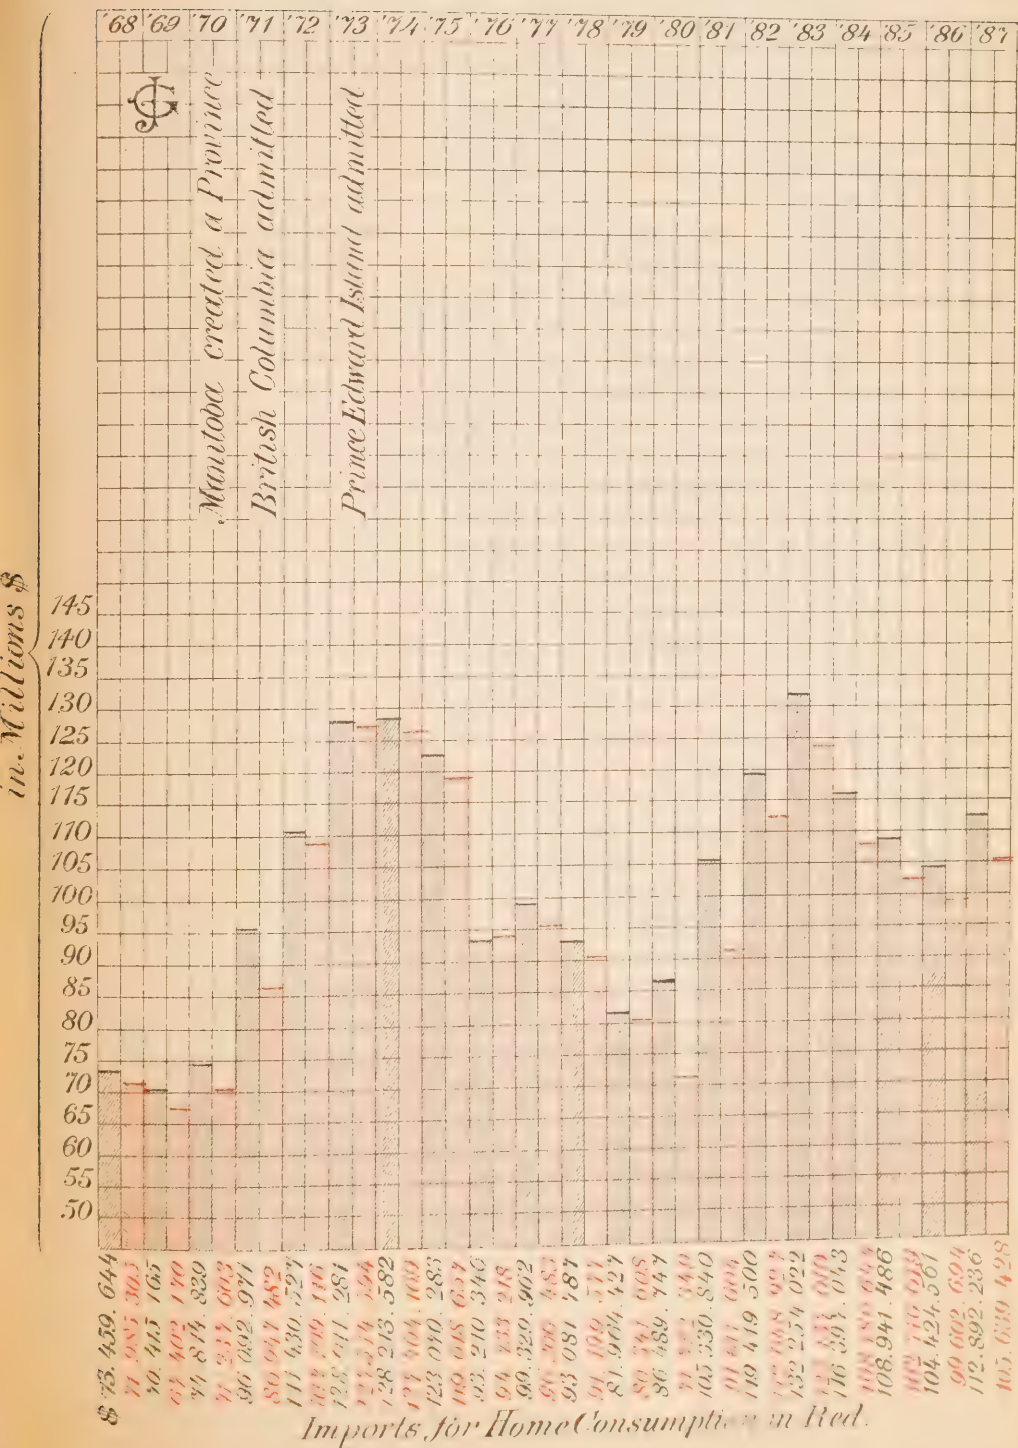 '68 '69 '70 '71 '72 '73 '74 '75 '76 '77 '78 '79 '80 '81 '82 '83 '84 '85 '86 '87
Manitoba created a Province
British Columbia admitted
Prince Edward Island admitted
in Millions $
145
140
135
130
125
120
115
110
105
100
95
90
85
80
75
70
65
60
55
50
$ 73.459.644
71.985.303
70.415.165
67.402.170
74.814.839
71.237.603
96.092.971
86.947.482
111.430.527
128.011.281
128.213.582
123.070.283
119.618.657
93.210.346
94.733.218
99.329.962
93.081.787
81.964.427
86.489.747
105.330.840
119.419.500
132.254.022
116.397.043
108.941.486
104.424.561
99.602.694
112.892.236
105.639.428
Imports for Home Consumption in Red.